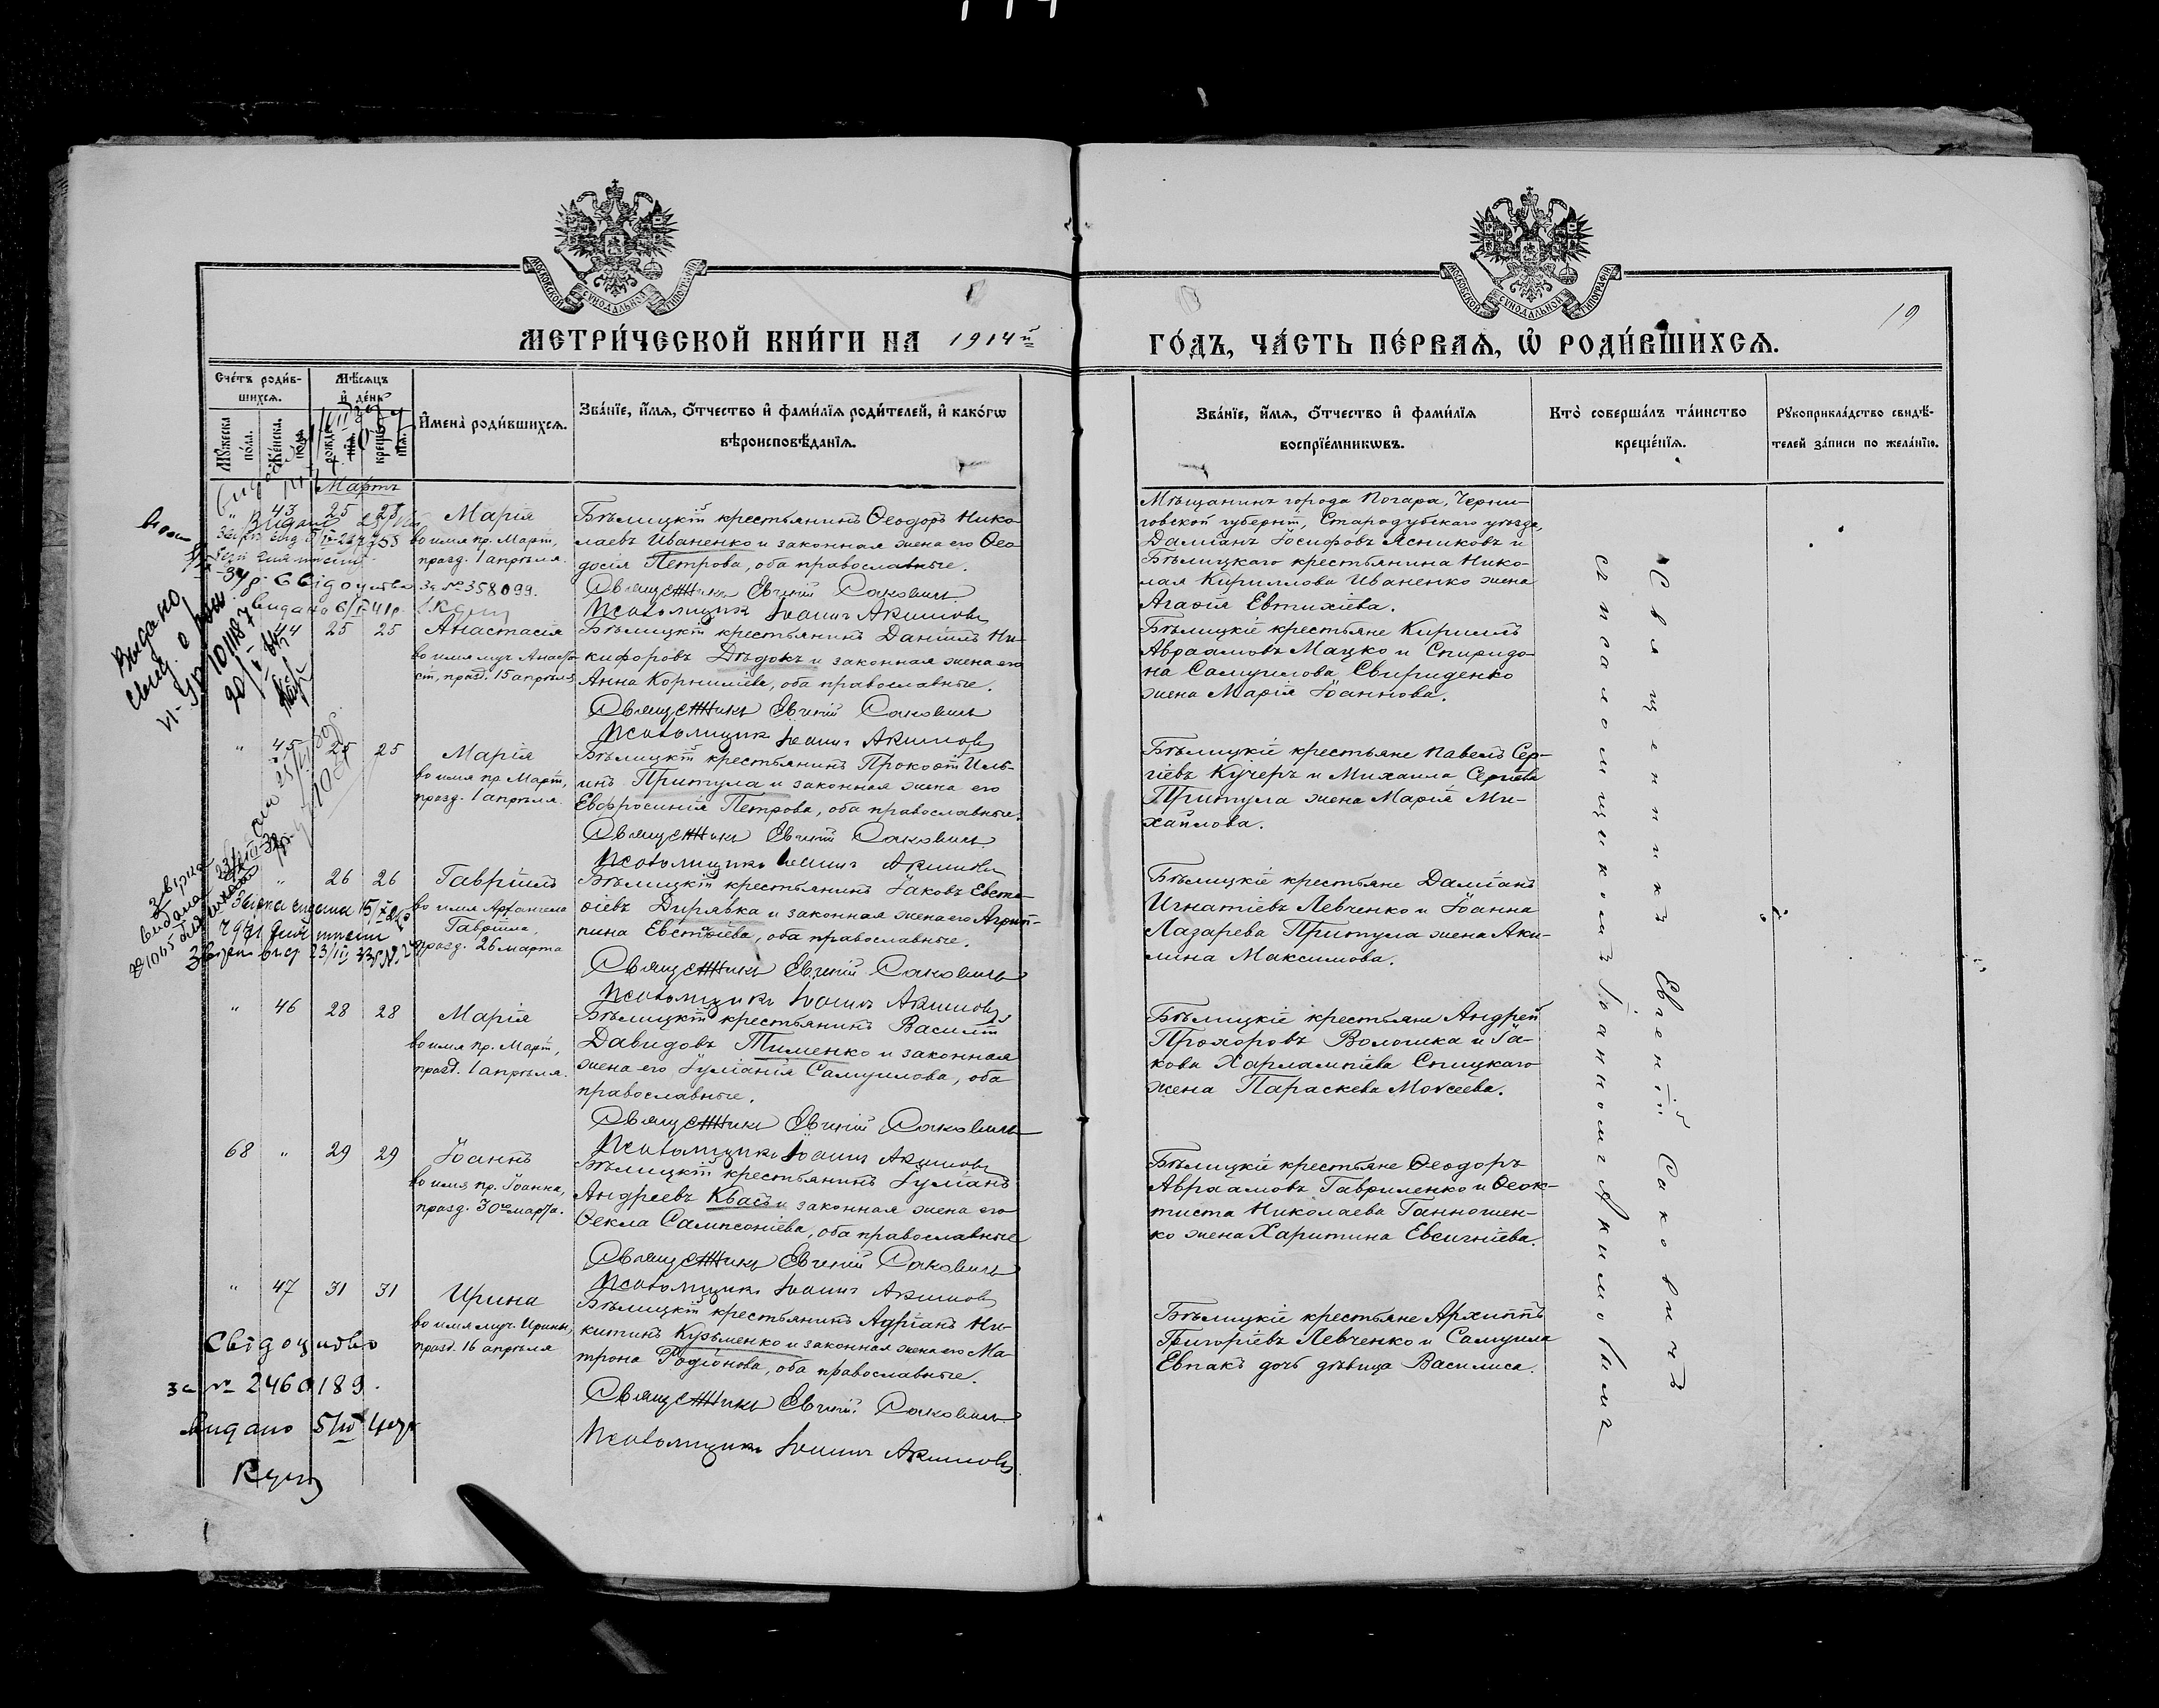 МОСКОВСКОЙ СѴНОДАЛЬНОЙ ТИПОГРАФІИ
МОСКОВСКОЙ СѴНОДАЛЬНОЙ ТИПОГРАФІИ
МЕТРИ́ЧЕСКОЙ КНИ́ГИ НА 1914й
ГО́ДЪ, ЧА́СТЬ ПЕ́РВАѦ, Ѡ҆ РОДИ́ВШИХСѦ.
19
Сче́тъ роди́в-
шихсѧ.
Мѣ́сѧцъ
и҆ де́нь
Мꙋжеска по́ла.
Же́нска. по́ла.
рожде́нїѧ.
креще́нїѧ.
И҆мена̀ роди́вшихсѧ.
Зва́нїе, и҆́мѧ, ѻ҆́тчество и҆ фами́лїѧ роди́телей, и҆ како́гѡ
вѣроисповѣ́данїѧ.
Зва́нїе, и҆́мѧ, ѻ҆́тчество и҆ фами́лїѧ
воспрїе́мникѡвъ.
Кто̀ соверша́лъ та́инство
креще́нїѧ.
Рꙋкоприкла́дство свидѣ́-
телей за́писи по жела́нїю.
Мартъ
" 43 25 25 Марія
во имя пр. Маріи,
празд. 1 апрѣля.
Бѣлицкій крестьянинъ Ѳеодоръ Нико-
лаевъ Иваненко и законная жена его Ѳео-
досія Петрова, оба православные.
Священникъ Евгеній Саковичъ
Псаломщикъ Іоаннъ Акимовъ
Мѣщанинъ города Погара, Черни-
говской губерніи, Стародубскаго уѣзда,
Даміанъ Іосифовъ Ясниковъ и
Бѣлицкаго крестьянина Нико-
лая Кириллова Иваненко жена
Агафія Евтихіева.
Свідоцтво за № 358099.
видано 6/ІІ 41р.
44 25 25 Анастасія
во имя муч. Анаста-
сіи, празд. 15 апрѣля
Бѣлицкій крестьянинъ Даніилъ Ни-
кифоровъ Дѣдокъ и законная жена его
Анна Корниліева, оба православные.
Священникъ Евгеній Саковичъ
Псаломщикъ Іоаннъ Акимовъ
Бѣлицкіе крестьяне Кириллъ
Авраамовъ Мацко и Спиридо-
на Самуилова Свириденко
жена Марія Іоаннова.
Видано
свид. о рож
" 45 25 25 Марія
во имя пр. Маріи,
празд. 1 апрѣля.
Бѣлицкій крестьянинъ Прокопій Иль-
инъ Притула и законная жена его
Евфросинія Петрова, оба православные.
Священникъ Евгеній Саковичъ
Псаломщикъ Іоаннъ Акимовъ
Бѣлицкіе крестьяне Павелъ Сер-
гіевъ Кучеръ и Михаила Сергіева
Притула жена Марія Ми-
хайлова.
" 26 26 Гавріилъ
во имя Архангела
Гавріила,
празд. 26 марта
Бѣлицкій крестьянинъ Іаковъ Евста-
фіевъ Дирявка и законная жена его Агрип-
пина Евстафіева, оба православные.
Священникъ Евгеній Саковичъ
Псаломщикъ Іоаннъ Акимовъ
Бѣлицкіе крестьяне Даміанъ
Игнатіевъ Левченко и Іоанна
Лазарева Притула жена Аки-
лина Максимова.
" 46 28 28 Марія
во имя пр. Маріи,
празд. 1 апрѣля.
Бѣлицкій крестьянинъ Василій
Давидовъ Тименко и законная
жена его Іуліанія Самуилова, оба
православные.
Священникъ Евгеній Саковичъ
Псаломщикъ Іоаннъ Акимовъ
Бѣлицкіе крестьяне Андрей
Прохоровъ Волошка и Іа-
кова Харлампіева Спицкаго
жена Параскева Моѵсеева.
68 " 29 29 Іоаннъ
во имя пр. Іоанна,
празд. 30го марта.
Бѣлицкій крестьянинъ Іуліанъ
Андреевъ Квасъ и законная жена его
Ѳекла Сампсоніева, оба православные
Священникъ Евгеній Саковичъ
Псаломщикъ Іоаннъ Акимовъ
Бѣлицкіе крестьяне Ѳеодоръ
Авраамовъ Гавриленко и Ѳеок-
тиста Николаева Ганношен-
ко жена Харитина Евсигніева.
" 47 31 31 Ирина
во имя муч. Ирины,
празд. 16 апрѣля
Бѣлицкій крестьянинъ Адріанъ Ни-
китинъ Кузьменко и законная жена его Ма-
трона Родіонова, оба православные.
Священникъ Евгеній Саковичъ
Псаломщикъ Іоаннъ Акимовъ
Бѣлицкіе крестьяне Архиппъ
Григоріевъ Левченко и Самуила
Евпакъ дочь дѣвица Василиса.
Свідоцтво
за № 2460189.
видано 5/ІІІ
Священникъ Евгеній Саковичъ
съ псаломщикомъ Іоанномъ Акимовымъ